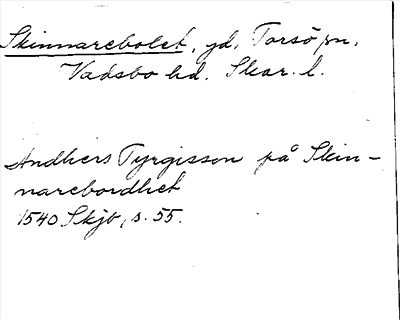 Skinnarebolet, gd, Torsö sn.
Vadsbo hd. Skar. l.
Andhers Tyrgisson på Skin-
narebordhet
1540 Skjb, s. 55.